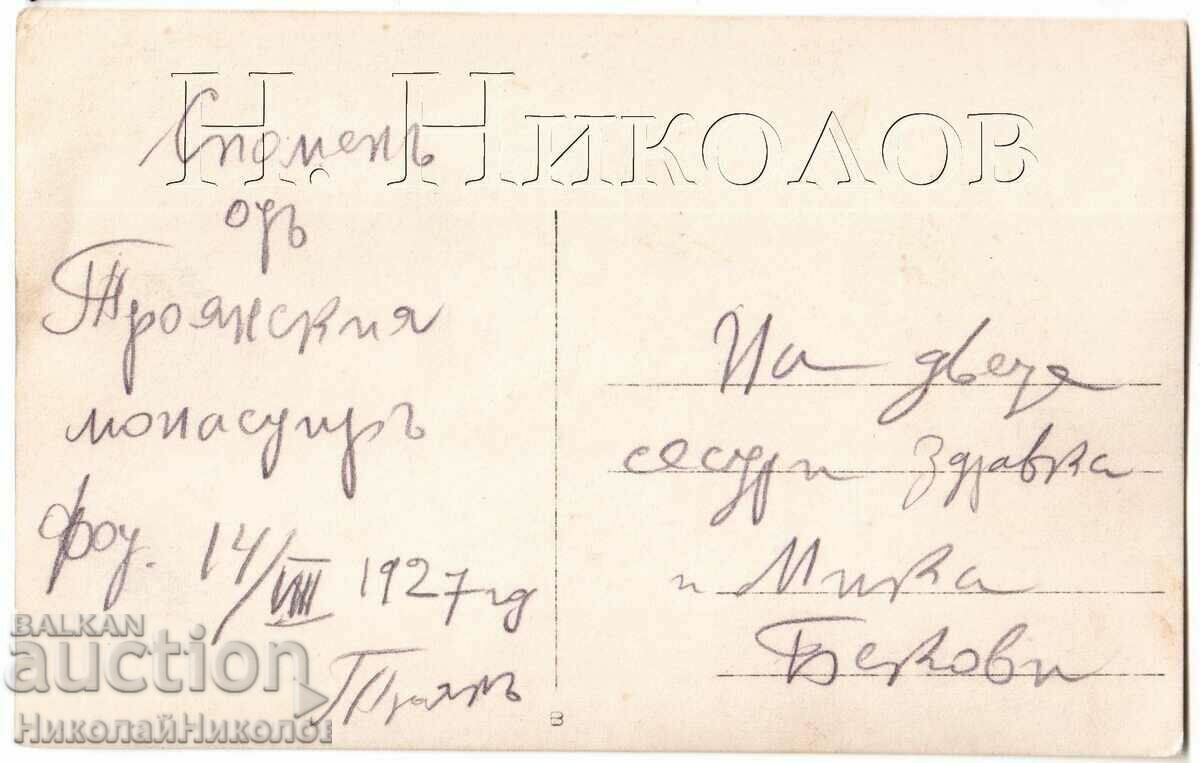 Н. Николов
Споменъ
отъ
Троянския
монастиръ
фот. 14/VIII 1927 год
Троянъ
На двете
сестри Здравка
и Мика
Бекови
В
BALKAN
auction
НиколайНиколов